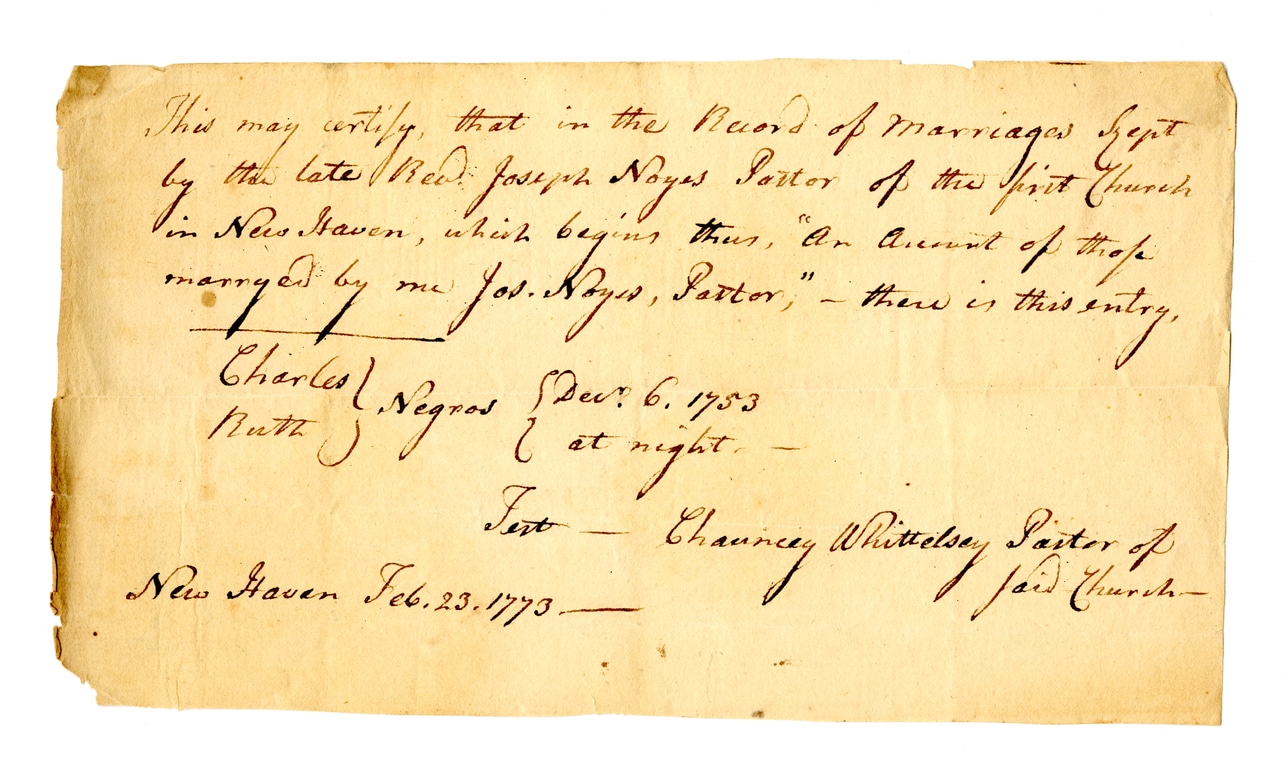 This may certify, that in the Record of Marriages kept
by the late Revd. Joseph Noyes Pastor of the first Church
in New Haven, which begins thus, "An Account of those
marryed by me Jos. Noyes, Pastor," – there is this entry,
Charles } Negros { Decr. 6. 1753
Ruth } { at night. —
Test — Chauncey Whittelsey Pastor of
said Church —
New Haven Feb. 23. 1773. —